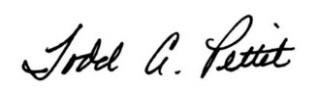 Todd A. Pettit